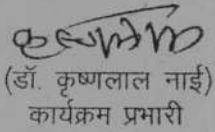 (डॉ. कृष्णलाल नाई)
कार्यक्रम प्रभारी